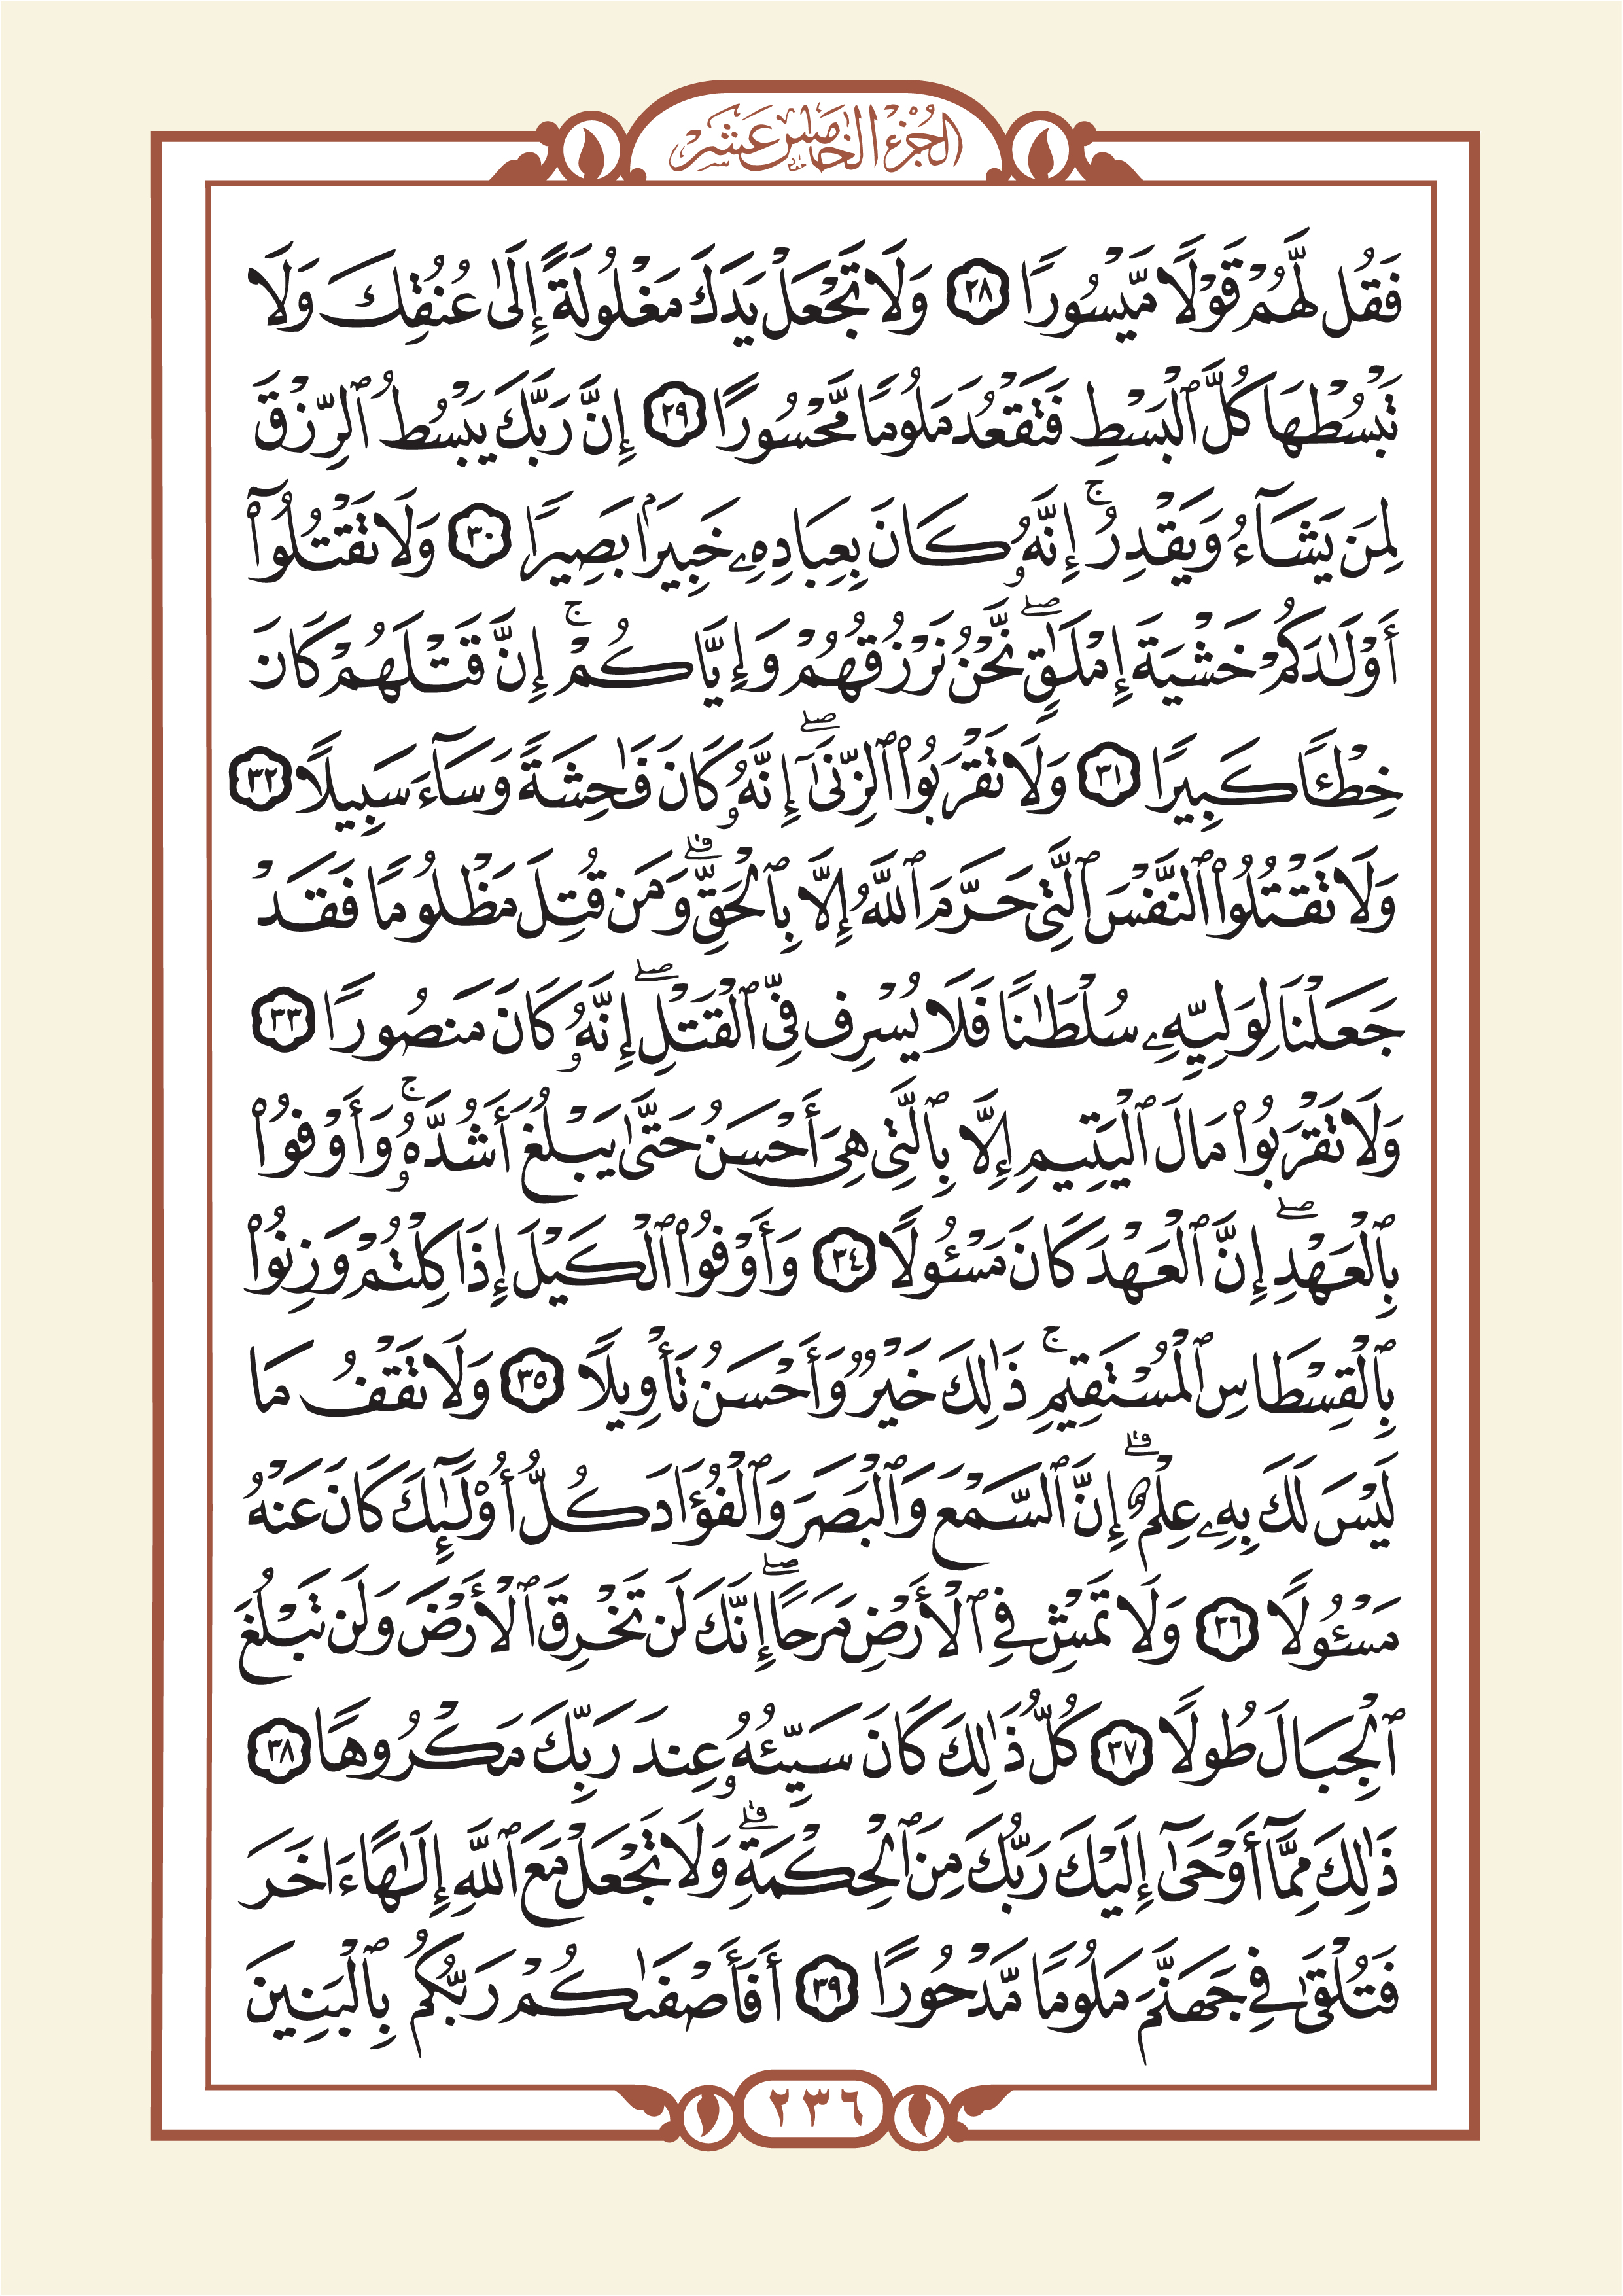 الجزء الخامس عشر
فَقُل لَّهُمْ قَوْلًا مَّيْسُورًا ٢٨ وَلَا تَجْعَلْ يَدَكَ مَغْلُولَةً إِلَىٰ عُنُقِكَ وَلَا
تَبْسُطْهَا كُلَّ ٱلْبَسْطِ فَتَقْعُدَ مَلُومًا مَّحْسُورًا ٢٩ إِنَّ رَبَّكَ يَبْسُطُ ٱلرِّزْقَ
لِمَن يَشَآءُ وَيَقْدِرُ ۚ إِنَّهُۥ كَانَ بِعِبَادِهِۦ خَبِيرَۢا بَصِيرًا ٣٠ وَلَا تَقْتُلُوٓا۟
أَوْلَـٰدَكُمْ خَشْيَةَ إِمْلَـٰقٍ ۖ نَّحْنُ نَرْزُقُهُمْ وَإِيَّاكُمْ ۚ إِنَّ قَتْلَهُمْ كَانَ
خِطْـًٔا كَبِيرًا ٣١ وَلَا تَقْرَبُوا۟ ٱلزِّنَىٰٓ ۖ إِنَّهُۥ كَانَ فَـٰحِشَةً وَسَآءَ سَبِيلًا ٣٢
وَلَا تَقْتُلُوا۟ ٱلنَّفْسَ ٱلَّتِى حَرَّمَ ٱللَّهُ إِلَّا بِٱلْحَقِّ ۗ وَمَن قُتِلَ مَظْلُومًا فَقَدْ
جَعَلْنَا لِوَلِيِّهِۦ سُلْطَـٰنًا فَلَا يُسْرِف فِّى ٱلْقَتْلِ ۖ إِنَّهُۥ كَانَ مَنصُورًا ٣٣
وَلَا تَقْرَبُوا۟ مَالَ ٱلْيَتِيمِ إِلَّا بِٱلَّتِى هِىَ أَحْسَنُ حَتَّىٰ يَبْلُغَ أَشُدَّهُۥ ۚ وَأَوْفُوا۟
بِٱلْعَهْدِ ۖ إِنَّ ٱلْعَهْدَ كَانَ مَسْـُٔولًا ٣٤ وَأَوْفُوا۟ ٱلْكَيْلَ إِذَا كِلْتُمْ وَزِنُوا۟
بِٱلْقِسْطَاسِ ٱلْمُسْتَقِيمِ ۚ ذَٰلِكَ خَيْرٌ وَأَحْسَنُ تَأْوِيلًا ٣٥ وَلَا تَقْفُ مَا
لَيْسَ لَكَ بِهِۦ عِلْمٌ ۗ إِنَّ ٱلسَّمْعَ وَٱلْبَصَرَ وَٱلْفُؤَادَ كُلُّ أُو۟لَـٰٓئِكَ كَانَ عَنْهُ
مَسْـُٔولًا ٣٦ وَلَا تَمْشِ فِى ٱلْأَرْضِ مَرَحًا ۖ إِنَّكَ لَن تَخْرِقَ ٱلْأَرْضَ وَلَن تَبْلُغَ
ٱلْجِبَالَ طُولًا ٣٧ كُلُّ ذَٰلِكَ كَانَ سَيِّئُهُۥ عِندَ رَبِّكَ مَكْرُوهًا ٣٨
ذَٰلِكَ مِمَّآ أَوْحَىٰٓ إِلَيْكَ رَبُّكَ مِنَ ٱلْحِكْمَةِ ۗ وَلَا تَجْعَلْ مَعَ ٱللَّهِ إِلَـٰهًا ءَاخَرَ
فَتُلْقَىٰ فِى جَهَنَّمَ مَلُومًا مَّدْحُورًا ٣٩ أَفَأَصْفَىٰكُمْ رَبُّكُم بِٱلْبَنِينَ
٢٣٦